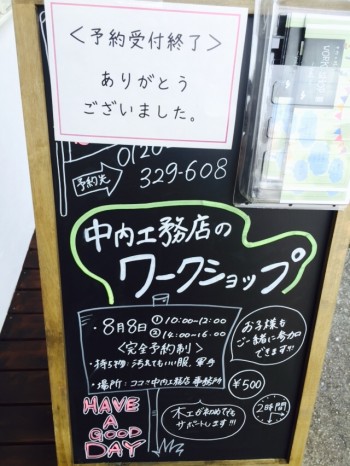 ＜予約受付終了＞
ありがとう
ございました。
0120-
予約先
329-608
中内工務店の
ワークショップ
・8月8日 ①10:00-12:00
②14:00-16:00
〈完全予約制〉
・持ち物:汚れてもいい服、軍手
・場所:ココ!!中内工務店 事務所
お子様も
ご一緒に参加
できます!!!
¥500
2時間
木工が初めてでも
サポートします!!!
HAVE
A
GOOD
DAY